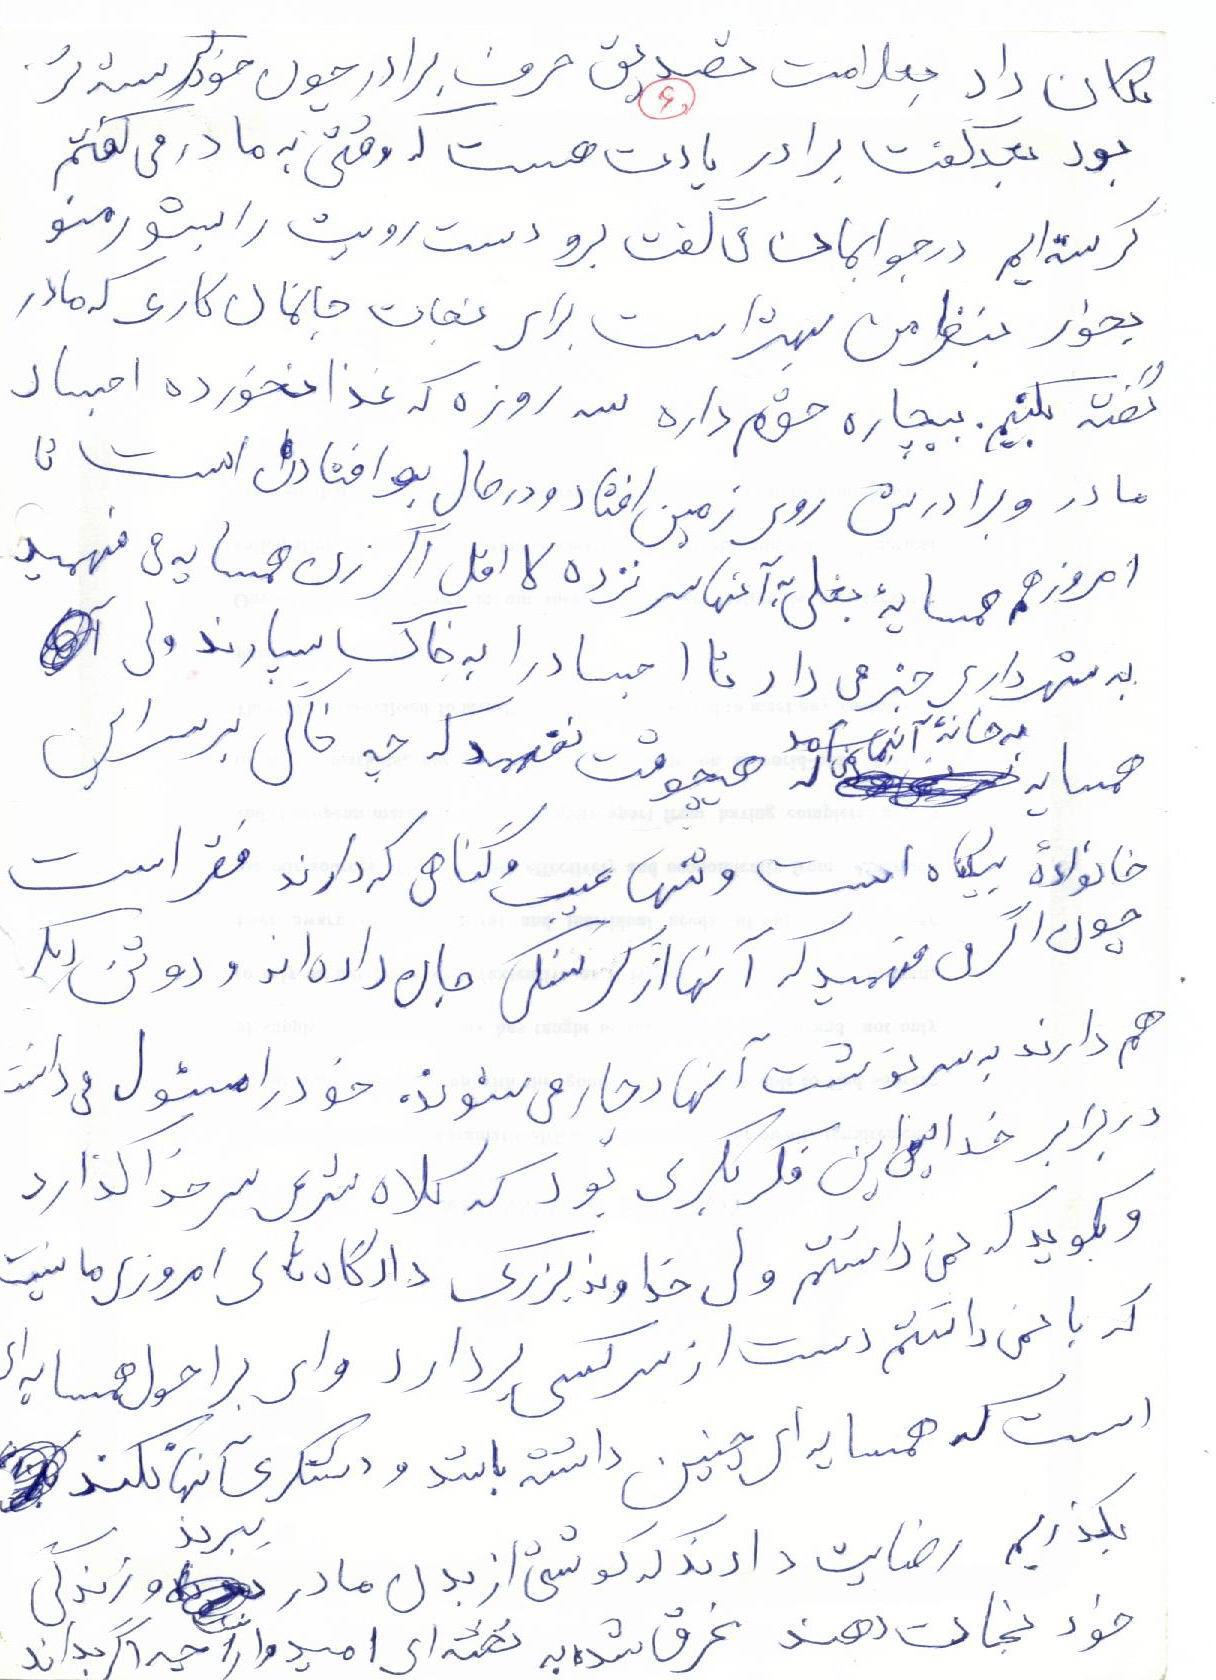 تکان داد بعلامت تصدیق حرف برادر چون خود گرسنه تر
۶
بود بعد گفت برادر یادت هست که وقتی به مادر می گفتم
گرسنه ایم در جوابمان می گفت برو دست رویت را بشور منو
بخور بنظر من بهتر است برای نجات جانمان کاری که مادر
گفته بکنیم. بیچاره حق دارد سه روزه که غذا نخورده اجساد
مادر و برادرش روی زمین افتاد و در حال بو افتادن است تا
امروز هم همسایهٔ بغلی به آنها سر نزده لااقل اگر زن همسایه می فهمید
به شهرداری خبر می داد تا اجساد را به خاک بسپارند ولی
همسایه به خانهٔ آنها نمی آمد که هیچوقت نفهمد که چه خاکی بر سر این
خانوادهٔ بیگناه است و تنها عیب و گناهی که دارند فقر است
چون اگر می فهمید که آنها از گرسنگی جان داده اند و دو تن دیگر
هم دارند به سرنوشت آنها دچار می شوند. خود را مسئول می دانند
در برابر خدا پس این فکر بکری بود که کلاه شرعی سر خدا گذارد
و بگوید که نمی دانستم ولی خداوند بزرگ دادگاه های امروزی ما نیست
که با نمی دانستم دست از سر کسی بردارد وای بر احوال همسایه ای
است که همسایه ای چنین داشته باشد و دستگیری آنها نکند
بگذریم رضایت دادند که گوشتی از بدن مادر ببرند و زندگی
خود نجات دهند غرق شده به تخته ای امیدوار است چه اگر بداند